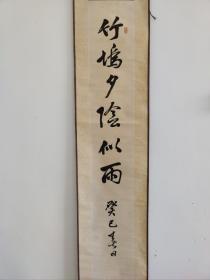 竹塢夕陰似雨
癸巳春日